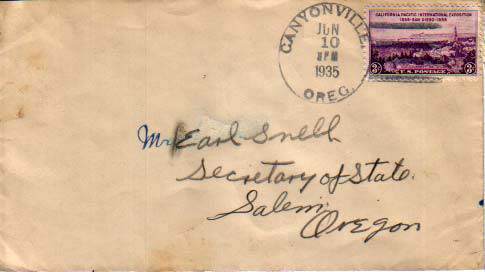 CANYONVILLE
JUN
10
8PM
1935
OREG.
CALIFORNIA PACIFIC INTERNATIONAL EXPOSITION
1935-SAN DIEGO-1935
3¢ U.S. POSTAGE 3¢
Mr Earl Snell
Secretary of State.
Salem
Oregon